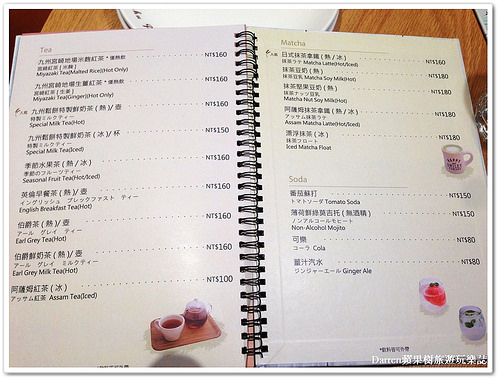 Tea
九州宮崎地場米麴紅茶 *僅熱飲
NT$160
宮崎紅茶 [ 米麴 ]
Miyazaki Tea(Malted Rice)(Hot Only)
九州宮崎地場生薑紅茶 *僅熱飲
NT$160
宮崎紅茶 [ 生姜 ]
Miyazaki Tea(Ginger)(Hot Only)
九州鬆餅特製鮮奶茶 ( 熱 ) / 壺
NT$160
特製ミルクティー
Special Milk Tea(Hot)
九州鬆餅特製鮮奶茶 ( 冰 ) / 杯
NT$150
特製ミルクティー
Special Milk Tea(Iced)
季節水果茶 ( 熱 / 冰 )
NT$160
季節のフルーツティー
Seasonal Fruit Tea(Hot/Iced)
英倫早餐茶 ( 熱 ) / 壺
NT$160
イングリッシュ ブレックファスト ティー
English Breakfast Tea(Hot)
伯爵茶 ( 熱 ) / 壺
NT$160
アール グレイ ティー
Earl Grey Tea(Hot)
伯爵鮮奶茶 ( 熱 ) / 壺
NT$160
アール グレイ ミルクティー
Earl Grey Milk Tea(Hot)
阿薩姆紅茶 ( 冰 )
NT$100
アッサム紅茶 Assam Tea(Iced)
Matcha
日式抹茶拿鐵 ( 熱 / 冰 )
NT$160
抹茶ラテ Matcha Latte(Hot/Iced)
抹茶豆奶 ( 熱 )
NT$180
抹茶豆乳 Matcha Soy Milk(Hot)
抹茶堅果豆奶 ( 熱 )
NT$180
抹茶ナッツ豆乳
Matcha Nut Soy Milk(Hot)
阿薩姆抹茶拿鐵 ( 熱 / 冰 )
NT$180
アッサム抹茶ラテ
Assam Matcha Latte(Hot/Iced)
漂浮抹茶 ( 冰 )
NT$180
抹茶フロート
Iced Matcha Float
Soda
番茄蘇打
NT$150
トマトソーダ Tomato Soda
薄荷鮮綠莫吉托 ( 無酒精 )
NT$150
ノンアルコールモヒート
Non-Alcohol Mojito
可樂
NT$80
コーラ Cola
薑汁汽水
NT$80
ジンジャーエール Ginger Ale
*飲料皆可外帶
Darren蘋果樹旅遊玩樂誌